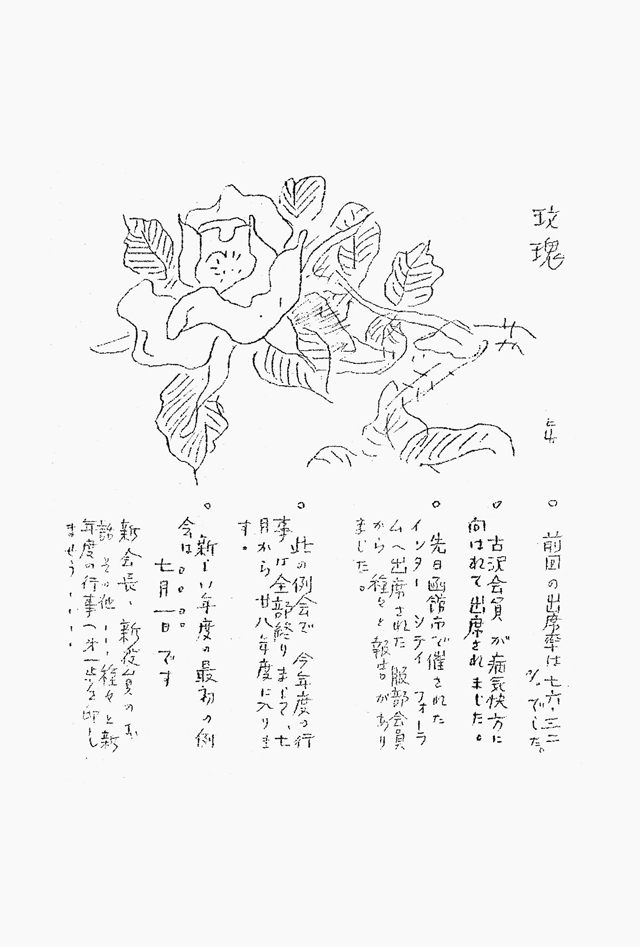 玫瑰
○ 前回の出席率は七六・三二
%でした。
○ 古沢会員が病気快方に
向はれて出席されました。
○ 先日函館市で催された
インター シティ フォーラ
ムへ出席された 服部会員
から 種々と報告があり
ました。
○ 此の例会で 今年度の行
事は全部終りまして、七
月から 廿八年度に入りま
す。
○ 新しい年度の最初の例
会は。。。。
七月一日です
新会長、新役員のお
話 その他 ‥‥ 種々と新
年度の行事へ第一歩を印し
ませう‥‥